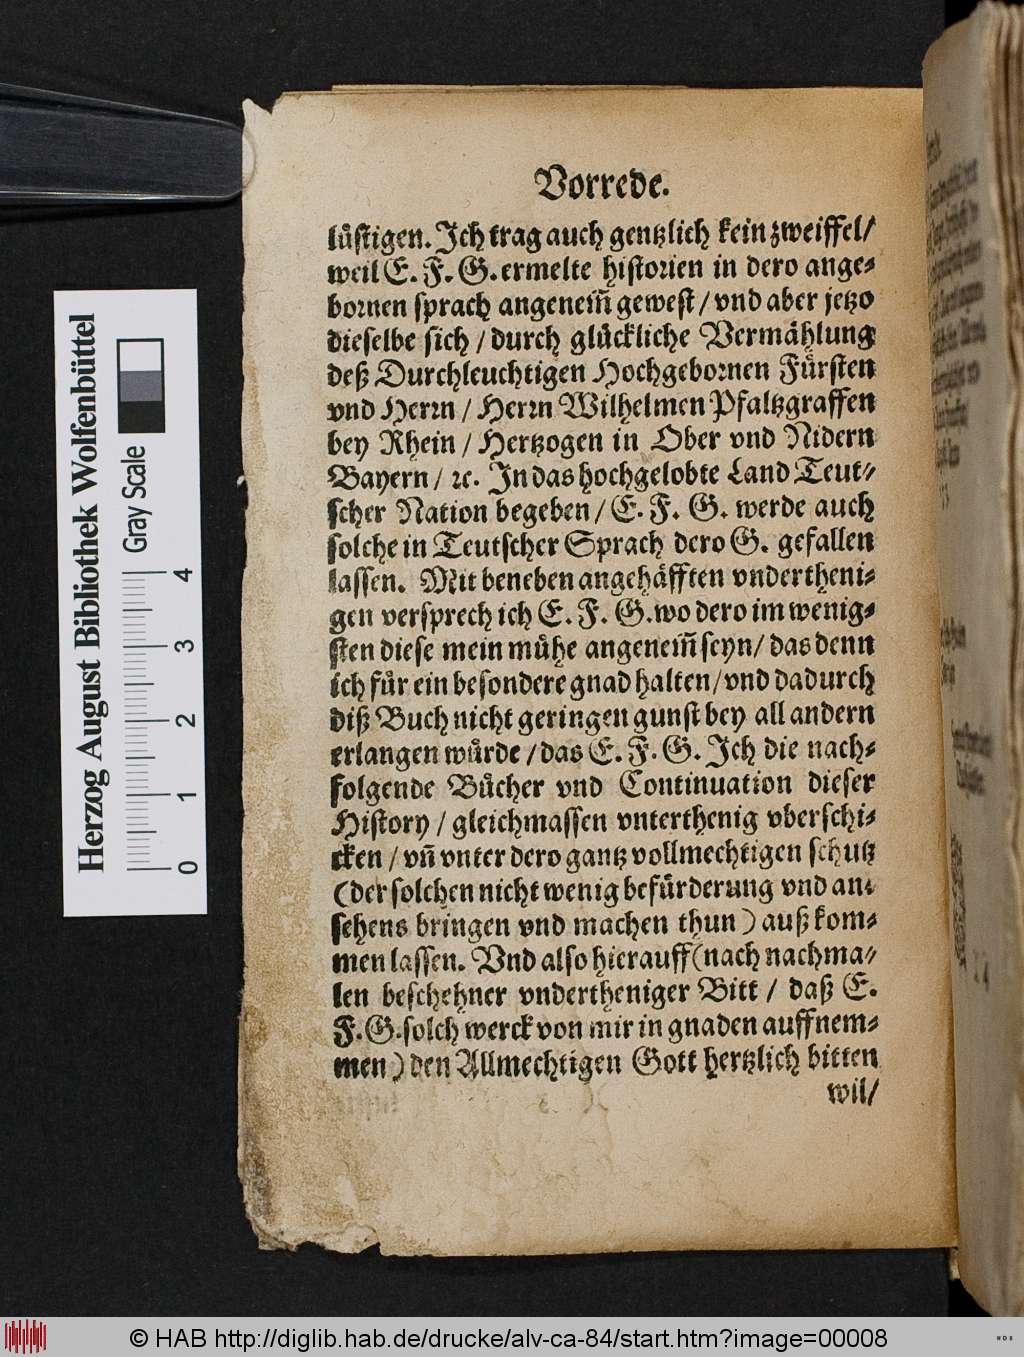 Vorrede.
lüstigen. Ich trag auch gentzlich kein zweiffel/
weil E. F. G. ermelte historien in dero ange⸗
bornen sprach angenem̃ gewest / vnd aber jetzo
dieselbe sich / durch glückliche Vermählung
deß Durchleuchtigen Hochgebornen Fürsten
vnd Herrn / Herrn Wilhelmen Pfaltzgraffen
bey Rhein / Hertzogen in Ober vnd Nidern
Bayern / ꝛc. In das hochgelobte Land Teut⸗
scher Nation begeben / E. F. G. werde auch
solche in Teutscher Sprach dero G. gefallen
lassen. Mit beneben angehäfften vndertheni⸗
gen versprech ich E. F. G. wo dero im wenig⸗
sten diese mein mühe angenem̃ seyn / das denn
ich für ein besondere gnad halten / vnd dadurch
diß Buch nicht geringen gunst bey all andern
erlangen würde / das E. F. G. Ich die nach⸗
folgende Bücher vnd Continuation dieser
History / gleichmassen vnterthenig vberschi⸗
cken / vñ vnter dero gantz vollmechtigen schutz
(der solchen nicht wenig befürderung vnd an⸗
sehens bringen vnd machen thun) auß kom⸗
men lassen. Vnd also hierauff (nach nachma⸗
len beschehner vndertheniger Bitt / daß E.
F. G. solch werck von mir in gnaden auffnem⸗
men) den Allmechtigen Gott hertzlich bitten
wil/
Herzog August Bibliothek Wolfenbüttel
Gray Scale
0 1 2 3 4
© HAB http://diglib.hab.de/drucke/alv-ca-84/start.htm?image=00008